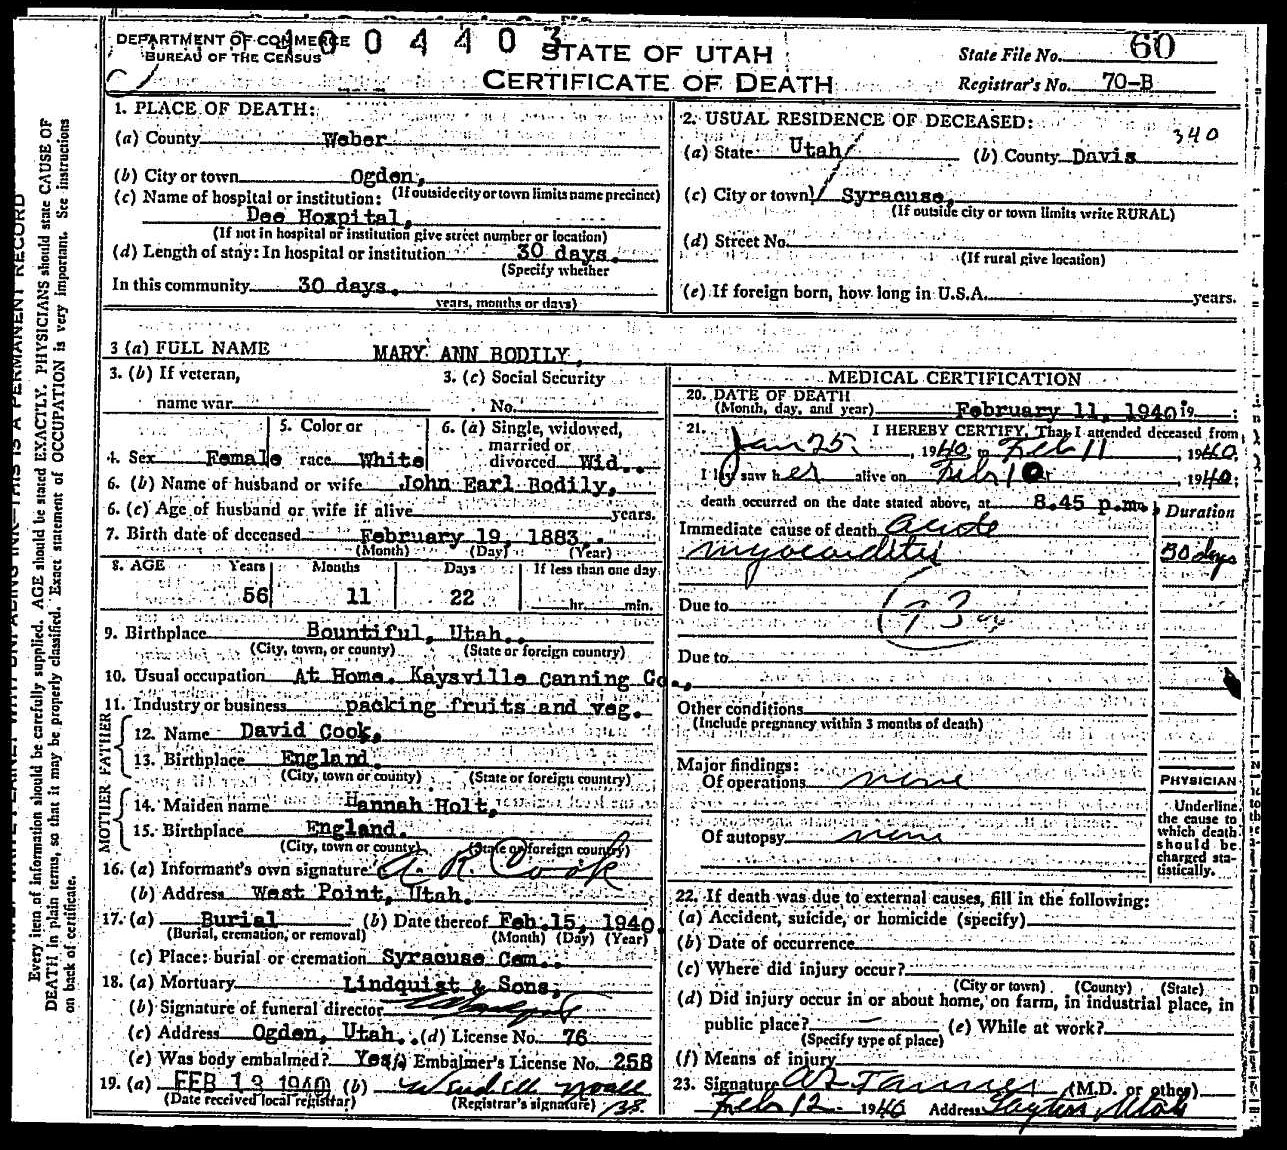 DEPARTMENT OF COMMERCE
BUREAU OF THE CENSUS
1004403
STATE OF UTAH
CERTIFICATE OF DEATH
State File No. 60
Registrar's No. 70-B
1. PLACE OF DEATH:
(a) County Weber
(b) City or town Ogden,
(If outside city or town limits name precinct)
(c) Name of hospital or institution:
Dee Hospital,
(If not in hospital or institution give street number or location)
(d) Length of stay: In hospital or institution 30 days.
(Specify whether
In this community 30 days.
years, months or days)
2. USUAL RESIDENCE OF DECEASED:
340
(a) State Utah (b) County Davis
(c) City or town Syracuse,
(If outside city or town limits write RURAL)
(d) Street No.
(If rural give location)
(e) If foreign born, how long in U.S.A. years.
3 (a) FULL NAME MARY ANN BODILY,
3. (b) If veteran,
name war
3. (c) Social Security
No.
4. Sex Female
5. Color or
race White
6. (a) Single, widowed,
married or
divorced Wid.
6. (b) Name of husband or wife John Earl Bodily,
6. (c) Age of husband or wife if alive years.
7. Birth date of deceased February 19, 1883.
(Month) (Day) (Year)
8. AGE Years Months Days If less than one day
56 11 22 hr. min.
9. Birthplace Bountiful, Utah.
(City, town, or county) (State or foreign country)
10. Usual occupation At Home. Kaysville Canning Co.,
11. Industry or business packing fruits and veg.
FATHER
12. Name David Cook,
13. Birthplace England.
(City, town or county) (State or foreign country)
MOTHER
14. Maiden name Hannah Holt,
15. Birthplace England.
(City, town or county) (State or foreign country)
16. (a) Informant's own signature A. R. Cook
(b) Address West Point, Utah.
17. (a) Burial (b) Date thereof Feb. 15, 1940.
(Burial, cremation, or removal) (Month) (Day) (Year)
(c) Place: burial or cremation Syracuse Cem.
18. (a) Mortuary Lindquist & Sons,
(b) Signature of funeral director
(c) Address Ogden, Utah. (d) License No. 76
(e) Was body embalmed? Yes, Embalmer's License No. 258
19. (a) FEB 13 1940 (b) Wendell Noall
(Date received local registrar) (Registrar's signature)
MEDICAL CERTIFICATION
20. DATE OF DEATH
(Month, day, and year) February 11, 1940 19 ;
21. I HEREBY CERTIFY, That I attended deceased from
Jan 25, 1940, to Feb 11, 1940,
I last saw her alive on Feb 10, 1940;
death occurred on the date stated above, at 8.45 p.m.,
Duration
Immediate cause of death acute
myocarditis 30 days
Due to
93
Due to
Other conditions
(Include pregnancy within 3 months of death)
Major findings:
Of operations none
Of autopsy none
PHYSICIAN
Underline
the cause to
which death
should be
charged sta-
tistically.
22. If death was due to external causes, fill in the following:
(a) Accident, suicide, or homicide (specify)
(b) Date of occurrence
(c) Where did injury occur?
(City or town) (County) (State)
(d) Did injury occur in or about home, on farm, in industrial place, in
public place? (e) While at work?
(Specify type of place)
(f) Means of injury
23. Signature Tanner (M.D. or other)
Feb 12 1940 Address Layton, Utah
Every item of information should be carefully supplied. AGE should be stated EXACTLY. PHYSICIANS should state CAUSE OF
DEATH in plain terms, so that it may be properly classified. Exact statement of OCCUPATION is very important. See instructions
on back of certificate.